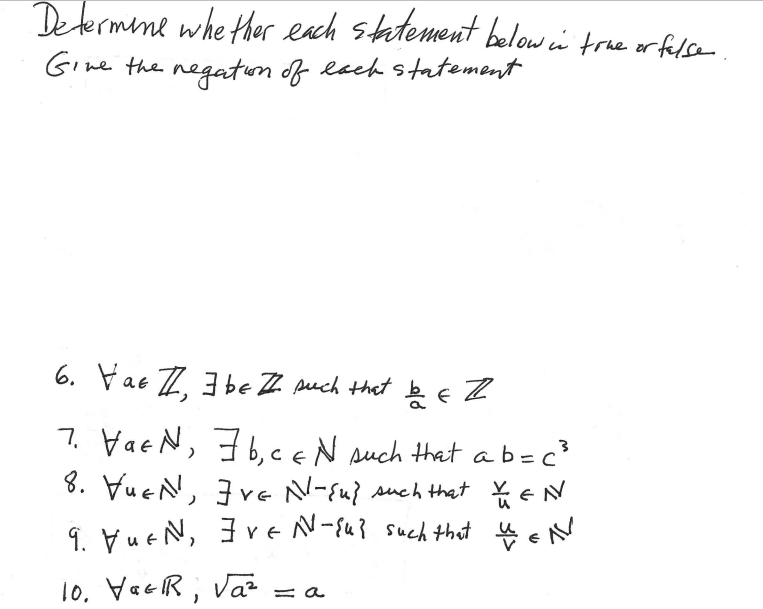 Determine whether each statement below is true or false.
Give the negation of each statement
6. ∀a∈ℤ, ∃b∈ℤ such that b/a ∈ ℤ
7. ∀a∈ℕ, ∃b,c∈ℕ such that ab=c³
8. ∀u∈ℕ, ∃v∈ℕ-{u} such that v/u ∈ ℕ
9. ∀u∈ℕ, ∃v∈ℕ-{u} such that u/v ∈ ℕ
10. ∀a∈ℝ, √a² = a